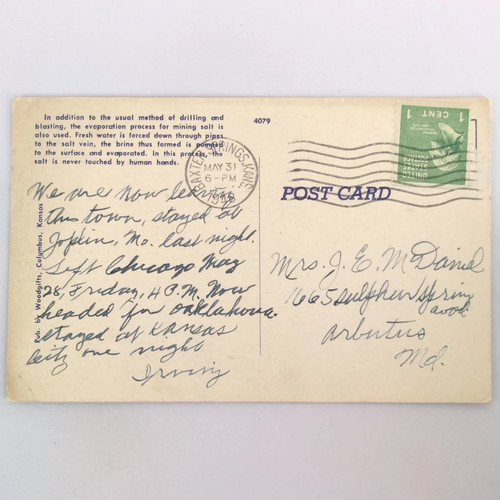 In addition to the usual method of drilling and
blasting, the evaporation process for mining salt is
also used. Fresh water is forced down through pipes
to the salt vein, the brine thus formed is pumped
to the surface and evaporated. In this process, the
salt is never touched by human hands.
4079
Pub. by Woodgifts, Columbus, Kansas
BAXTER SPRINGS, KANS.
MAY 31
6-PM
1 CENT 1
UNITED
STATES
POSTAGE
POST CARD
We are now leaving
this town, stayed at
Joplin, Mo. last night.
Left Chicago May
28, Friday, 4 P.M. Now
headed for Oaklahoma.
stayed at Kansas
City one night
Irving
Mrs. J. E. McDaniel
1665 Sulphur Spring
Arbutus
Md.